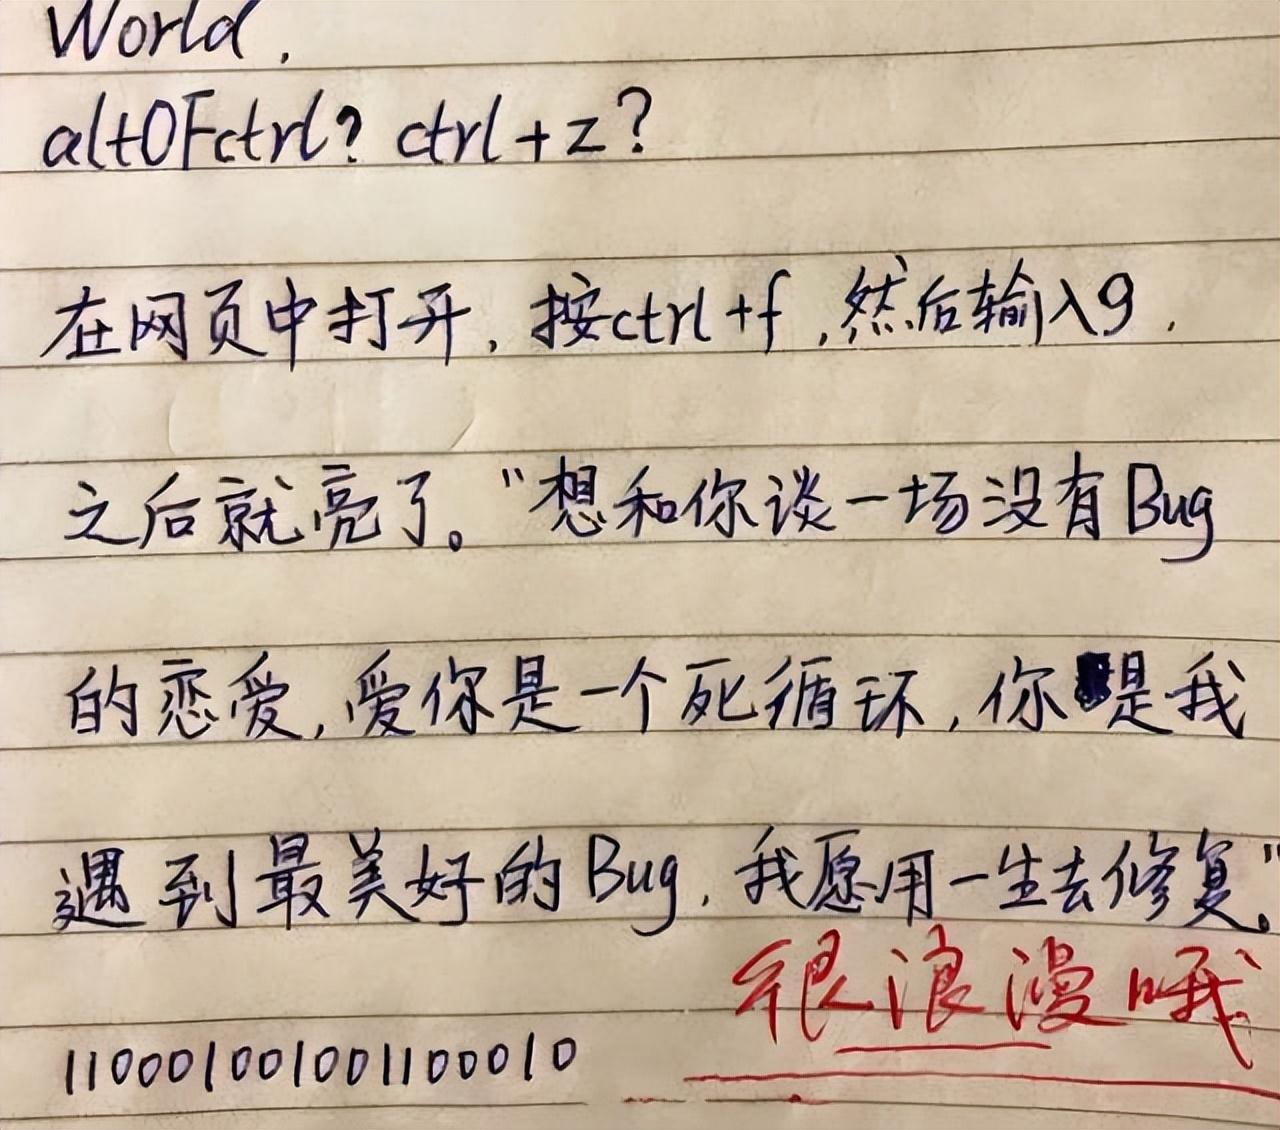 World.
alt0Fctrl? ctrl+z?
在网页中打开,按ctrl+f,然后输入9,
之后就亮了。“想和你谈一场没有Bug
的恋爱,爱你是一个死循环,你是我
遇到最美好的Bug,我愿用一生去修复。”
很浪漫哦
110001001001100010